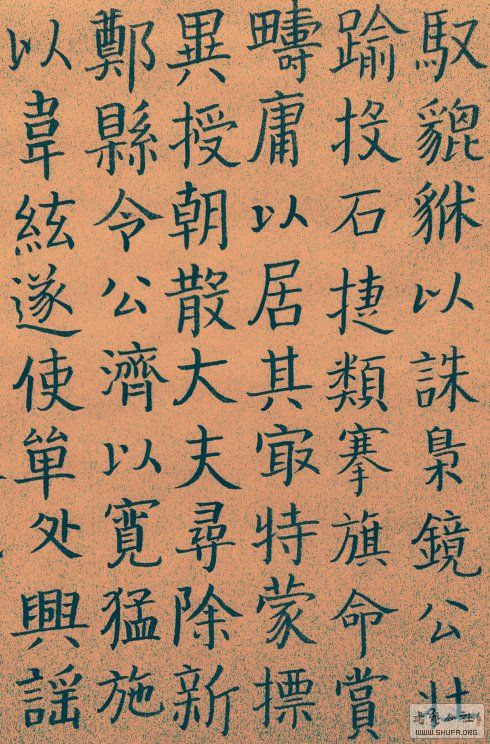 馭貔貅以誅梟鏡公壯
踰投石捷類搴旗命賞
疇庸以居其㝡特蒙摽
異授朝散大夫尋除新
鄭縣令公濟以寬猛施
以韋絃遂使單处興謡
WWW.SHUFA.ORG